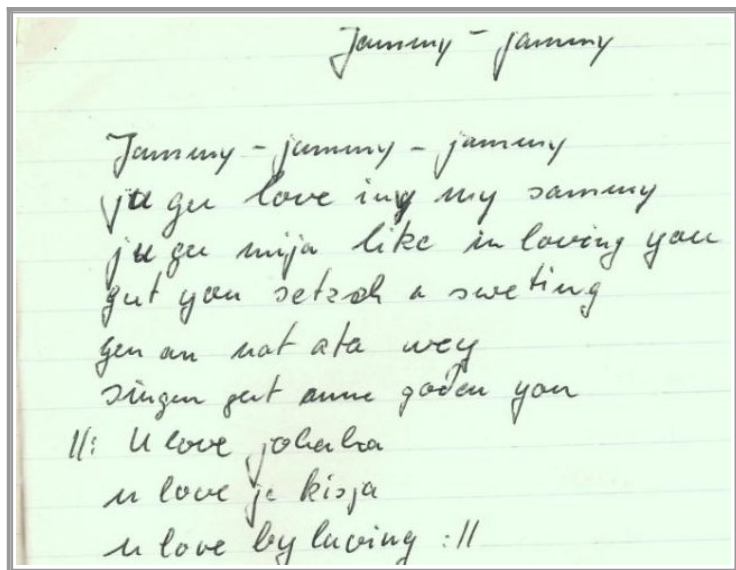 Jammy - jammy
Jammy - jammy - jammy
ju gu love ing my sammy
ju gu mija like in loving you
gut you setzoh a sweting
gen an not ata wey
singen gut anne goden you
||: U love johaha
u love je kisja
u love by luving :||